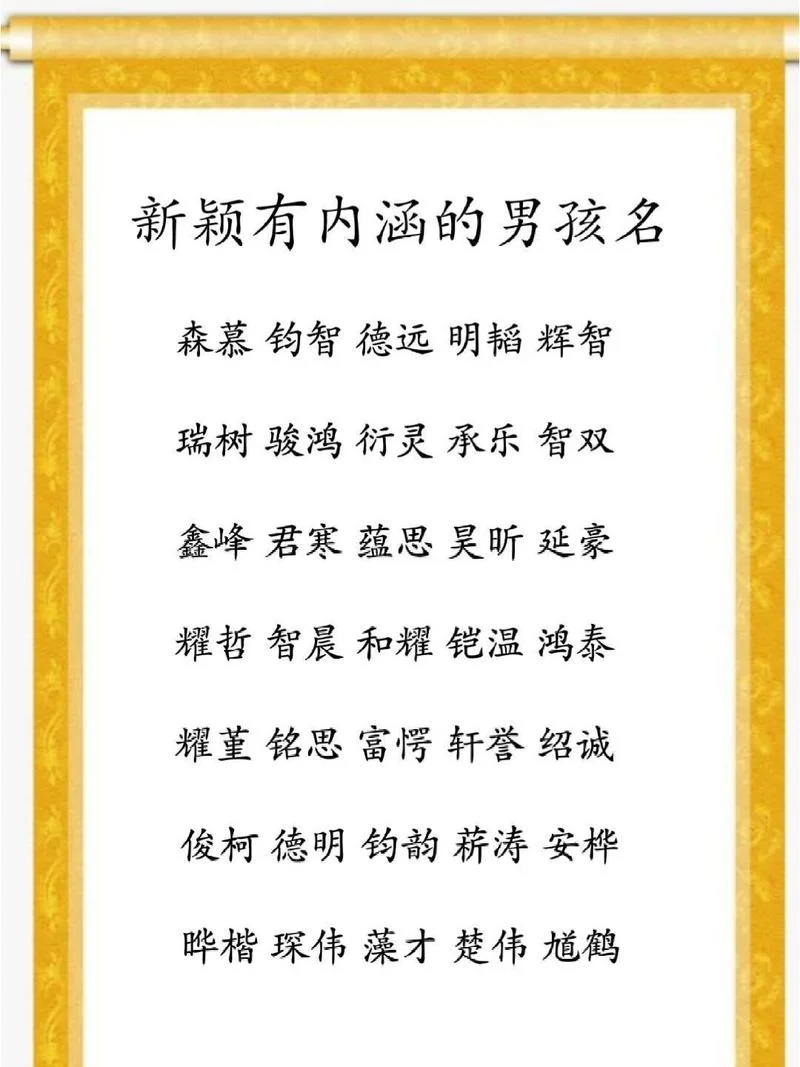 新颖有内涵的男孩名
森慕 钧智 德远 明韬 辉智
瑞树 骏鸿 衍灵 承乐 智双
鑫峰 君寒 蕴思 昊昕 延豪
耀哲 智晨 和耀 铠温 鸿泰
耀堇 铭思 富愕 轩誉 绍诚
俊柯 德明 钧韵 薪涛 安桦
晔楷 琛伟 藻才 楚伟 馗鹤